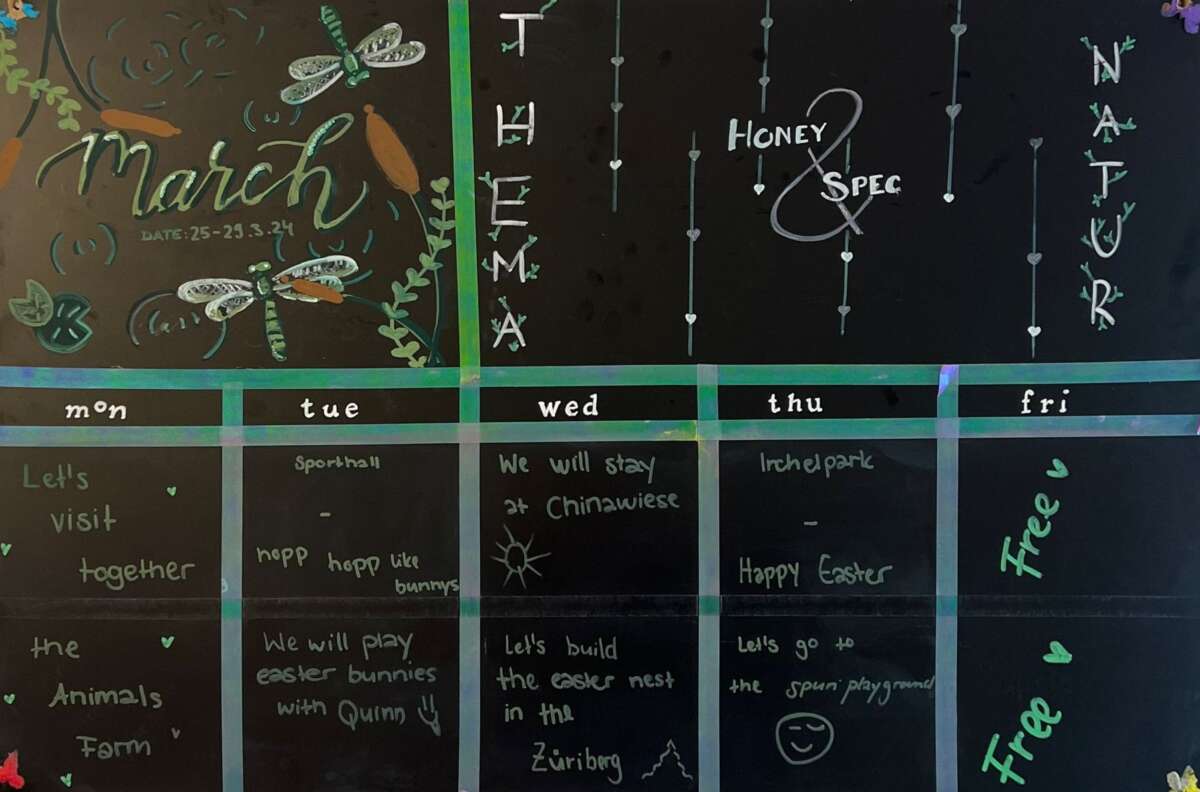 March
DATE: 25-29.3.24
THEMA
HONEY
&
SPEC
NATUR
mon
tue
wed
thu
fri
Let's
visit
together
Sporthall
-
hopp hopp like
bunnys
We will stay
at Chinawiese
Irchelpark
-
Happy Easter
Free
the
Animals
Farm
We will play
easter bunnies
with Quinn
Let's build
the easter nest
in the
Züriberg
Let's go to
the spun playground
Free